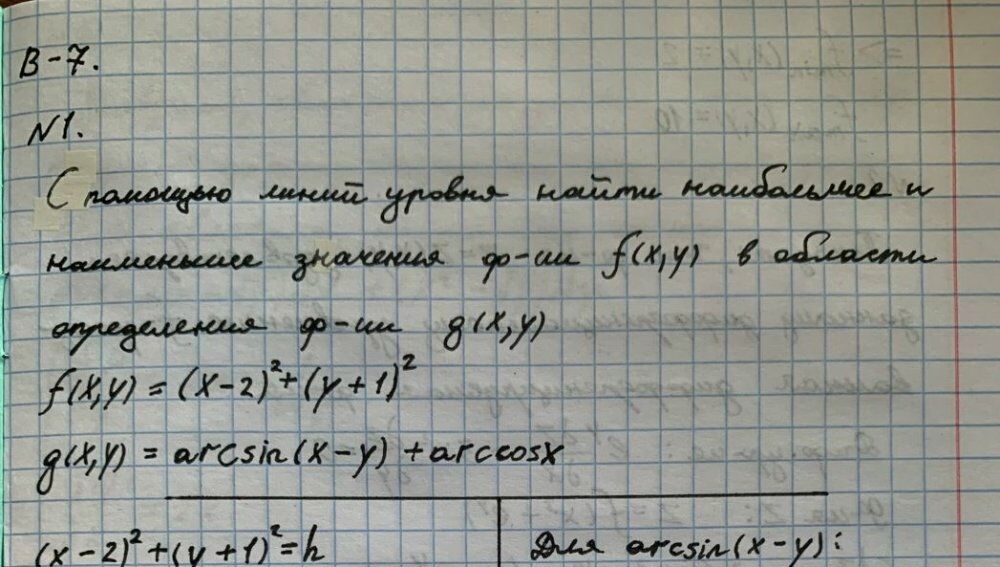 В-7.
N1.
С помощью линий уровня найти наибольшее и
наименьшие значения ф-ии f(x,y) в области
определения ф-ии g(x,y)
f(x,y) = (x-2)²+(y+1)²
g(x,y) = arcsin(x-y)+arccosx
(x-2)²+(y+1)²=h
Для arcsin(x-y):